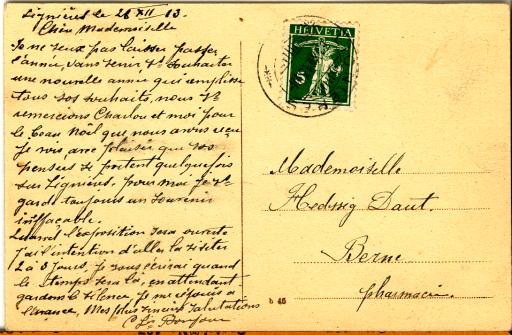 Lignières le 28 XII 13.
Chère Mademoiselle
Je ne veux pas laisser passer
l'année, sans venir Vs souhaiter
une nouvelle année qui remplisse
tous vos souhaits, nous Vs
remercions Charlou et moi pour
le beau Noël que nous avons reçu
Je vois avec plaisir que vos
pensées se portent quelquefois
sur Lignières. pour moi je Vs
garde toujours un souvenir
inéffaçable.
Quand l'exposition sera ouverte
j'ai l'intention d'aller la visiter
2 à 3 jours, je vous écrirai quand
le temps sera là, en attendant
gardons le silence, je me réjouis à
l'avance, Mes plus sincères salutations
HELVETIA
5
Mademoiselle
Hedwig Daut.
Berne
pharmacie.
b 45